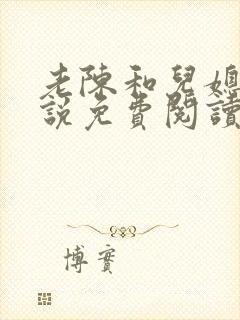 老陳和兒媳
說免費閱讀
博實